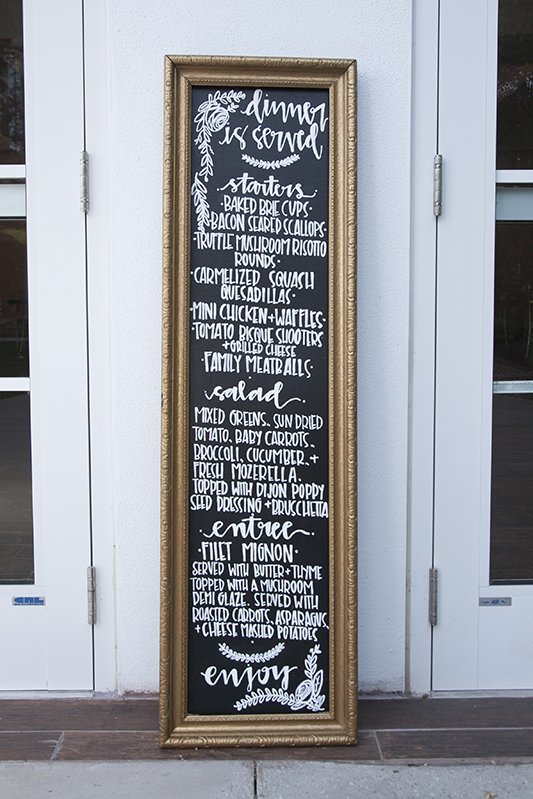 dinner
is served
starters
·BAKED BRIE CUPS·
·BACON SEARED SCALLOPS·
·TRUFFLE MUSHROOM RISOTTO
ROUNDS·
·CARMELIZED SQUASH
QUESADILLAS·
·MINI CHICKEN+WAFFLES·
·TOMATO BISQUE SHOOTERS
+GRILLED CHEESE
·FAMILY MEATBALLS·
salad
MIXED GREENS, SUN DRIED
TOMATO, BABY CARROTS,
BROCCOLI, CUCUMBER, +
FRESH MOZERELLA.
TOPPED WITH DIJON POPPY
SEED DRESSING +BRUSCHETTA
entree
·FILET MIGNON·
SERVED WITH BUTTER+THYME
TOPPED WITH A MUSHROOM
DEMI GLAZE. SERVED WITH
ROASTED CARROTS, ASPARAGUS,
+ CHEESE MASHED POTATOES
enjoy